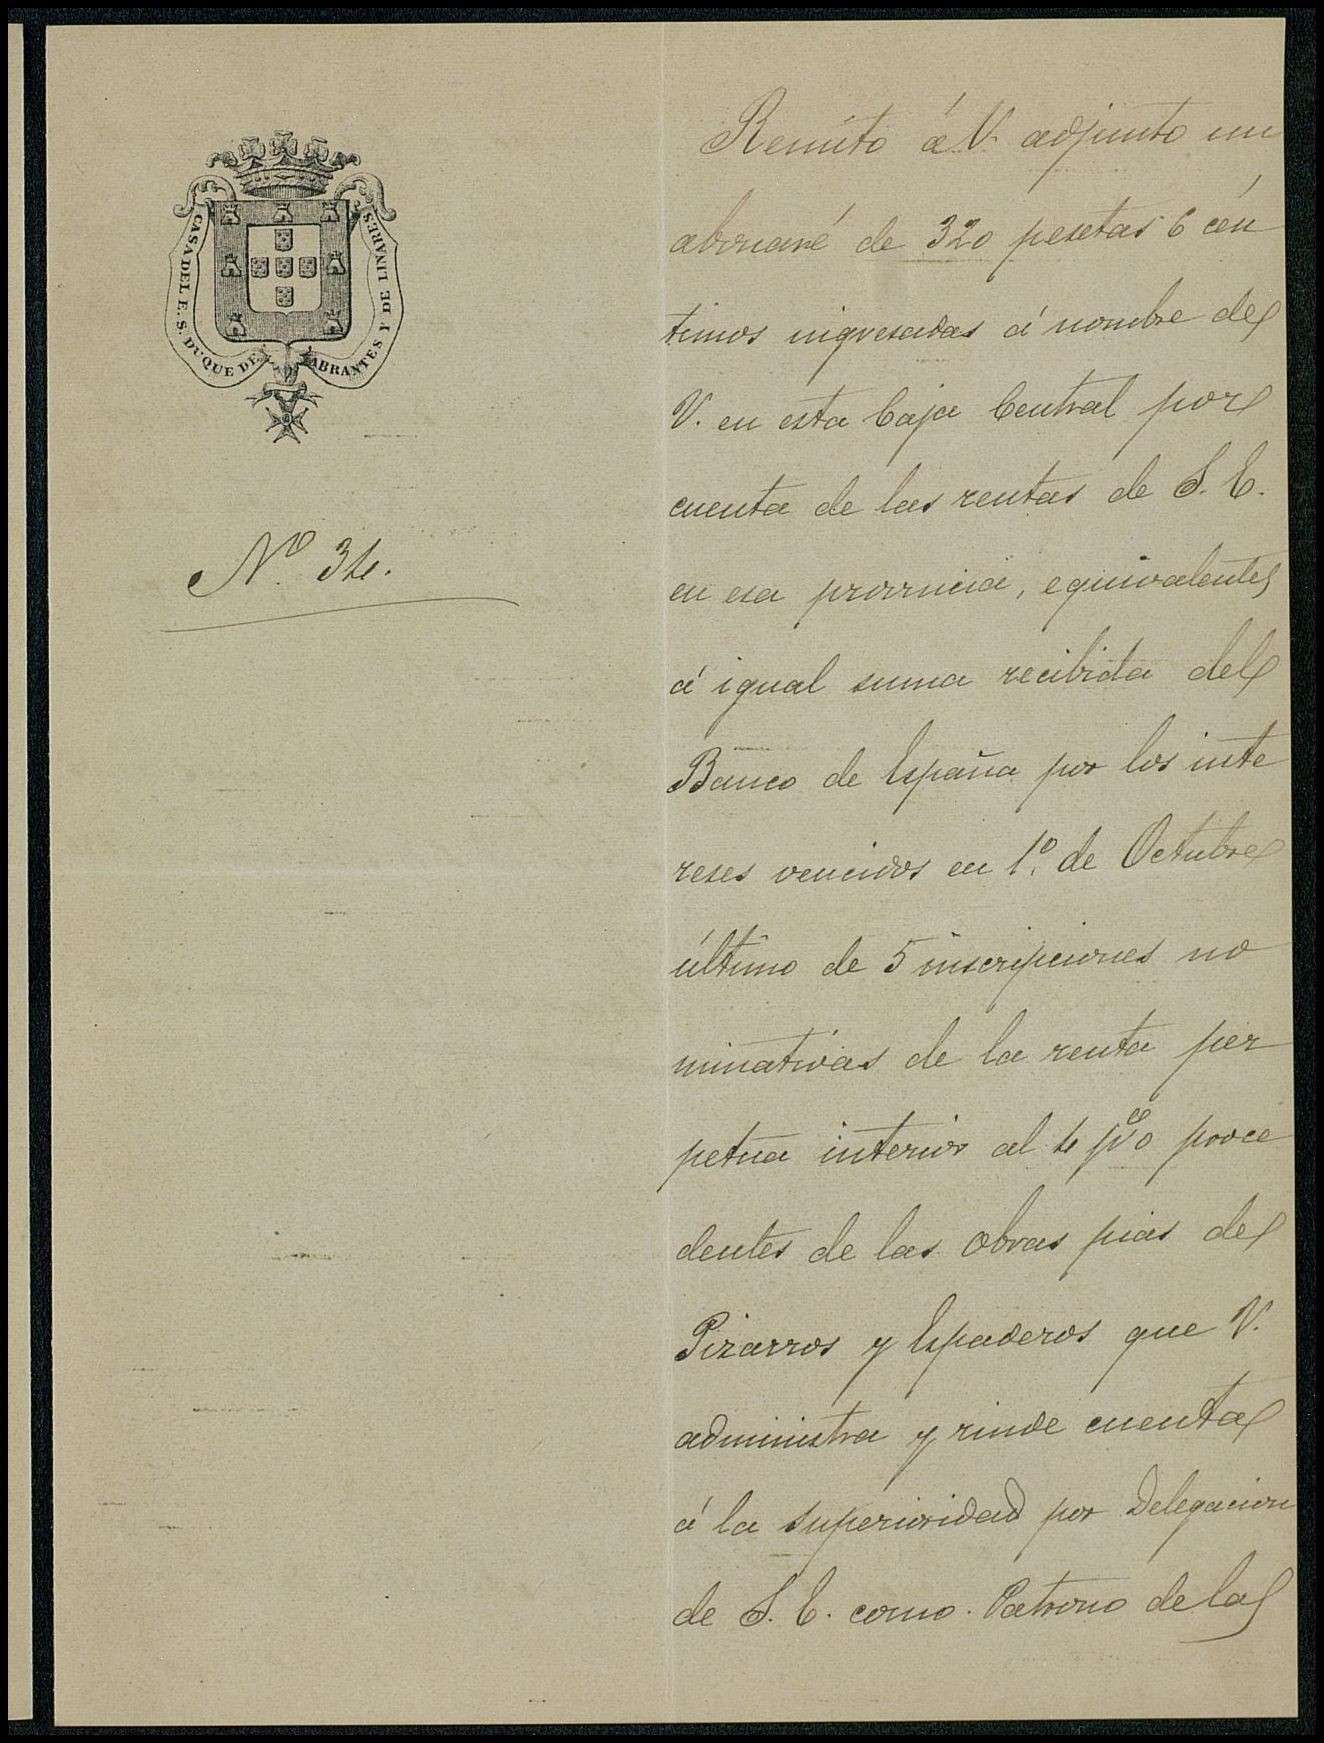 CASA DEL E. S. DUQUE DE ABRANTES Y DE LINARES
Nº 34.
Remito á V. adjunto un
abonaré de 320 pesetas 6 cén
timos ingresadas á nombre de
V. en esta Caja Central por
cuenta de las rentas de S. E.
en esa provincia, equivalentes
á igual suma recibida del
Banco de España por los inte
reses vencidos en 1º. de Octubre
último de 5 inscripciones no
minativas de la renta per
petua interior al 4 p% proce
dentes de las obras pias de
Pizarros y Espaderos que V.
administra y rinde cuenta
á la superioridad por delegacion
de S. E. como Patrono de las